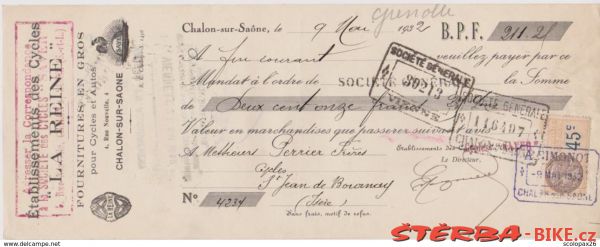 Grenoble
Chalon-sur-Saône, le 9 Mai 1932 B.P.F. 211.21
A fin courant veuillez payer par ce
Mandat à l'ordre de SOCIÉTÉ GÉNÉRALE la Somme
de Deux cent onze francs
Valeur en marchandises que passerez suivant avis
A Methours Perrier Frères
Cycles
St Jean de Bournay
(Isère)
Nº 4234
Sans frais, motif de refus.
Établissements des Cycles
Le Directeur,
Adresser la Correspondance
Établissements des Cycles
"LA REINE"
FOURNITURES EN GROS
pour Cycles et Autos
4, Rue Neuville, 4
CHALON-SUR-SAONE
SOCIÉTÉ GÉNÉRALE
30513
VIENNE
SOCIÉTÉ GÉNÉRALE
116407
45c
A. SIMONOT
-9 MAI 1932
CHALON-SUR-SAONE
STERBA-BIKE.cz
www.delcampe.net
seller: scolopax26